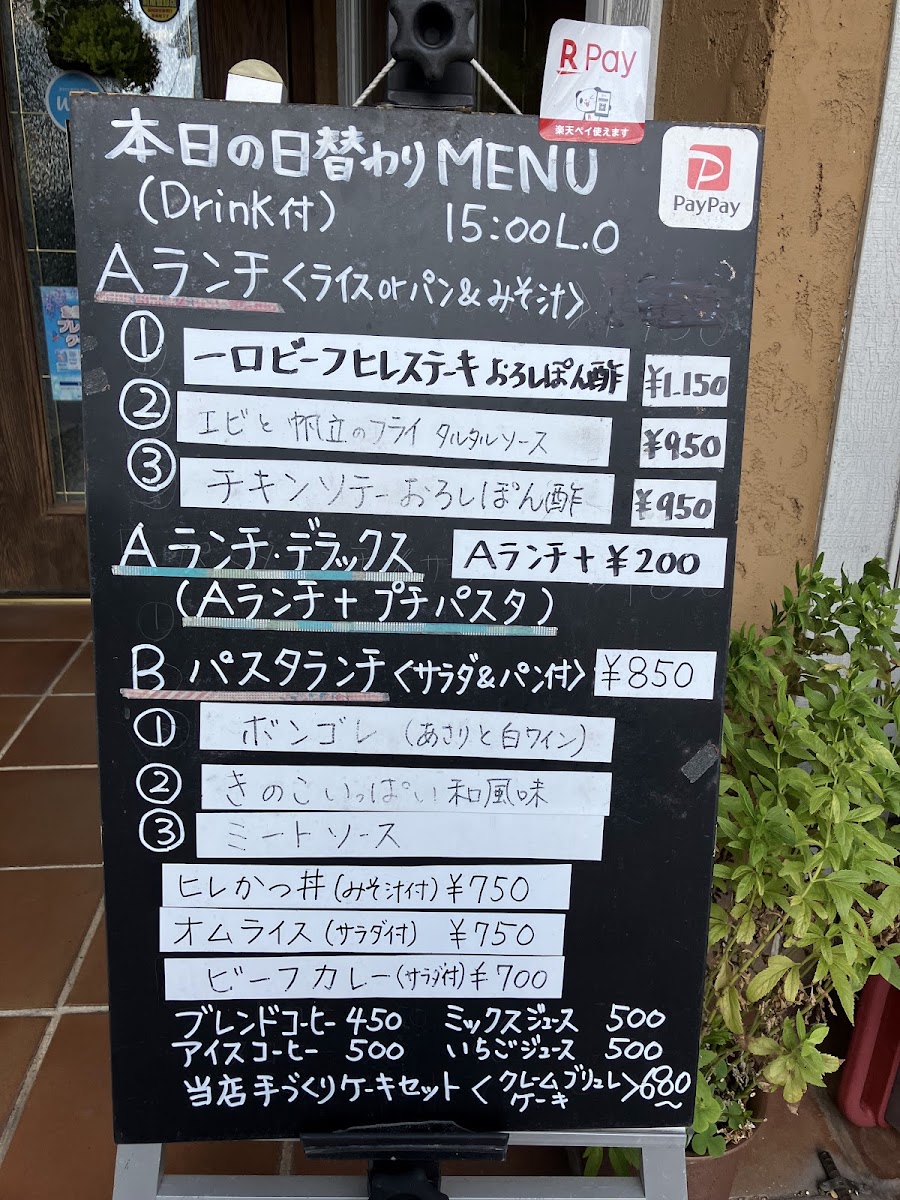 R Pay
楽天ペイ使えます
PayPay
本日の日替わりMENU
(Drink付) 15:00L.O
Aランチ〈ライスorパン&みそ汁〉
① 一口ビーフヒレステーキ おろしぽん酢 ¥1.150
② エビと帆立のフライ タルタルソース ¥950
③ チキンソテーおろしぽん酢 ¥950
Aランチ・デラックス Aランチ+¥200
(Aランチ+プチパスタ)
B パスタランチ〈サラダ&パン付〉 ¥850
① ボンゴレ (あさりと白ワイン)
② きのこいっぱい和風味
③ ミートソース
ヒレかつ丼(みそ汁付)¥750
オムライス(サラダ付) ¥750
ビーフカレー(サラダ付)¥700
ブレンドコーヒー 450 ミックスジュース 500
アイスコーヒー 500 いちごジュース 500
当店手づくりケーキセット〈クレームブリュレ ケーキ〉680~